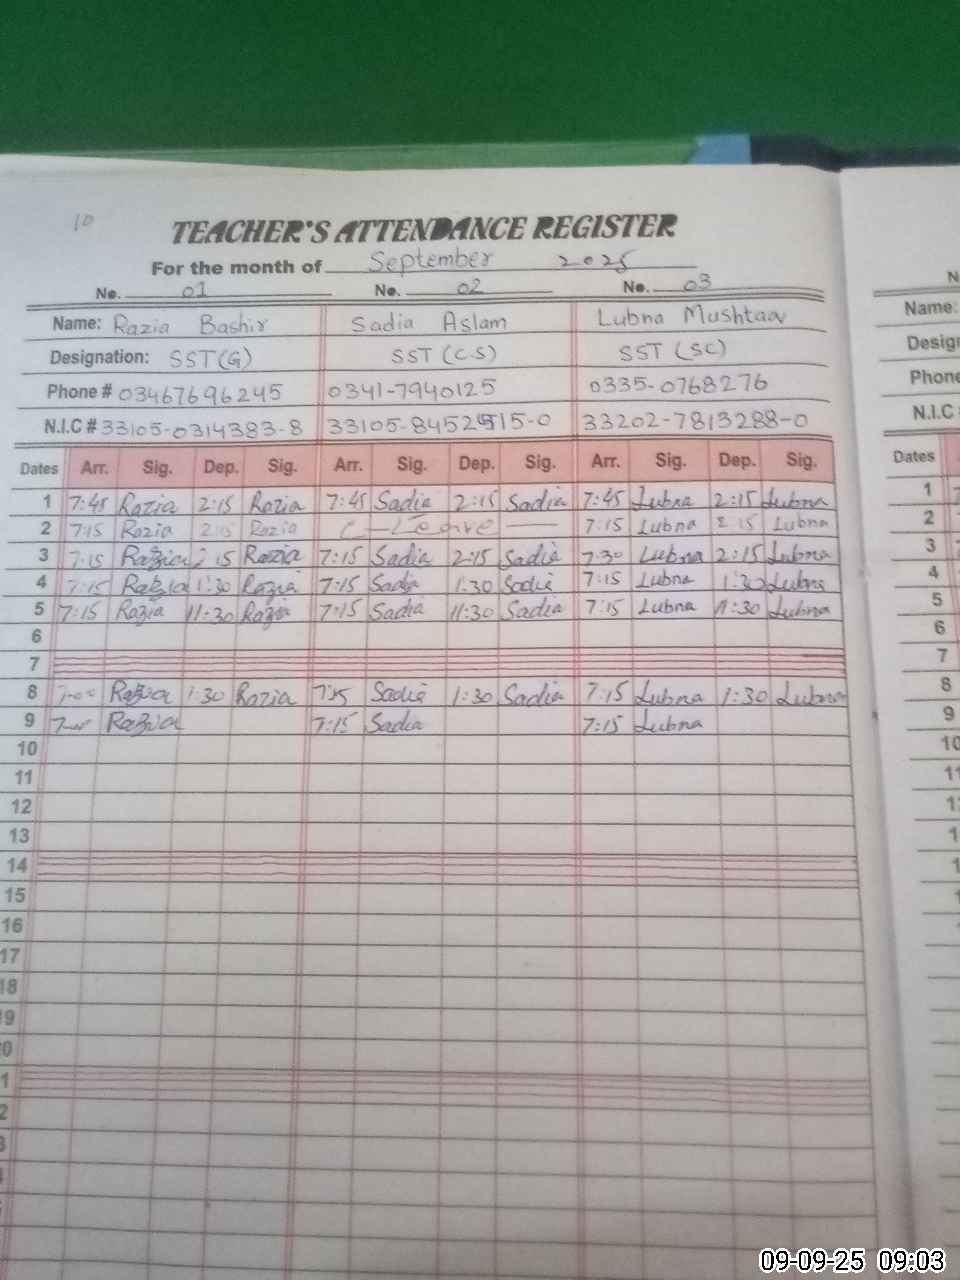 10
TEACHER'S ATTENDANCE REGISTER
For the month of September 2025
No. 01 No. 02 No. 03
Name: Razia Bashir Sadia Aslam Lubna Mushtaq Name:
Designation: SST(G) SST (C.S) SST (SC)
Phone # 03467696245 0341-7940125 0335-0768276 Phone
N.I.C # 33105-0314383-8 33105-845 15-0 33202-7813288-0 N.I.C #
Dates Arr. Sig. Dep. Sig. Arr. Sig. Dep. Sig. Arr. Sig. Dep. Sig. Dates
1 7:45 Razia 2:15 Razia 7:45 Sadia 2:15 Sadia 7:45 Lubna 2:15 Lubna 1
2 7:15 Razia 2:15 Razia C-Leave 7:15 Lubna 2:15 Lubna 2
3 7:15 Razia 2:15 Razia 7:15 Sadia 2:15 Sadia 7:30 Lubna 2:15 Lubna 3
4 7:15 Razia 1:30 Razia 7:15 Sadia 1:30 Sadia 7:15 Lubna 1:30 Lubna 4
5 7:15 Razia 11:30 Razia 7:15 Sadia 11:30 Sadia 7:15 Lubna 11:30 Lubna 5
6 6
7 7
8 7:00 Razia 1:30 Razia 7:15 Sadia 1:30 Sadia 7:15 Lubna 1:30 Lubna 8
9 7:00 Razia 7:15 Sadia 7:15 Lubna 9
10 10
11
12
13
14
15
16
17
18
19
09-09-25 09:03